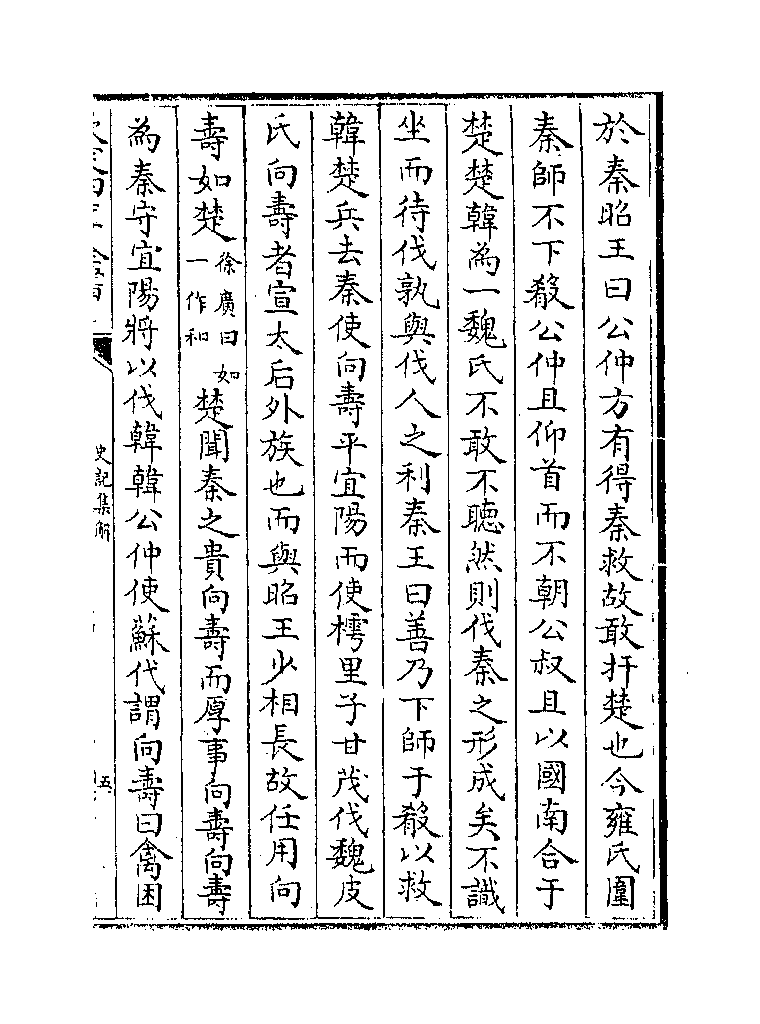 於秦昭王曰公仲方有得秦救故敢扞楚也今雍氏圍
秦師不下殽公仲且仰首而不朝公叔且以國南合于
楚楚韓為一魏氏不敢不聽然則伐秦之形成矣不識
坐而待伐孰與伐人之利秦王曰善乃下師于殽以救
韓楚兵去秦使向壽平宜陽而使樗里子甘茂伐魏皮
氏向壽者宣太后外族也而與昭王少相長故任用向
壽如楚徐廣曰如一作和楚聞秦之貴向壽而厚事向壽向壽
為秦守宜陽將以伐韓韓公仲使蘇代謂向壽曰禽困
史記集解
五